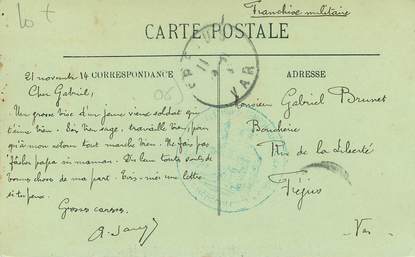 10 +
Franchise militaire
CARTE POSTALE
21 novembre 14 CORRESPONDANCE
ADRESSE
Cher Gabriel,
Un gros bise d'un jeune vieux soldat qui
t'aime bien. Sois bien sage, travaille bien, pour
qu'à mon retour tout marche bien. Ne fais pas
fâcher papa ni maman. Dis leur toutes sortes de
bonnes choses de ma part. Ecris-moi une lettre
si tu peux.
Grosses caresses.
Monsieur Gabriel Brunet
Boucherie
Rue de la Liberté
Fréjus
Var
VAR
06